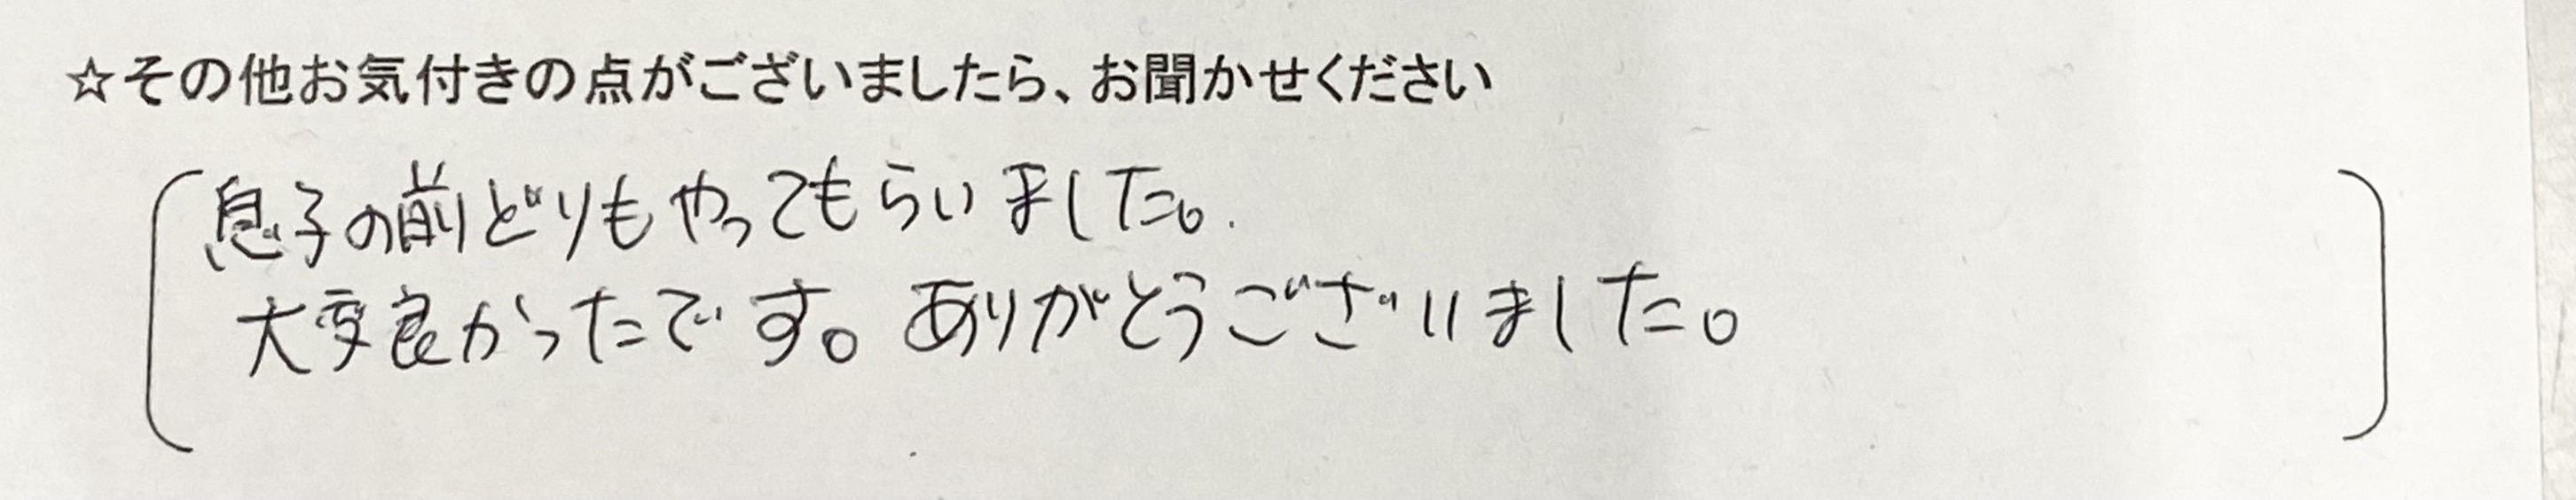 ☆その他お気付きの点がございましたら、お聞かせください
息子の前どりもやってもらいました。
大変良かったです。ありがとうございました。